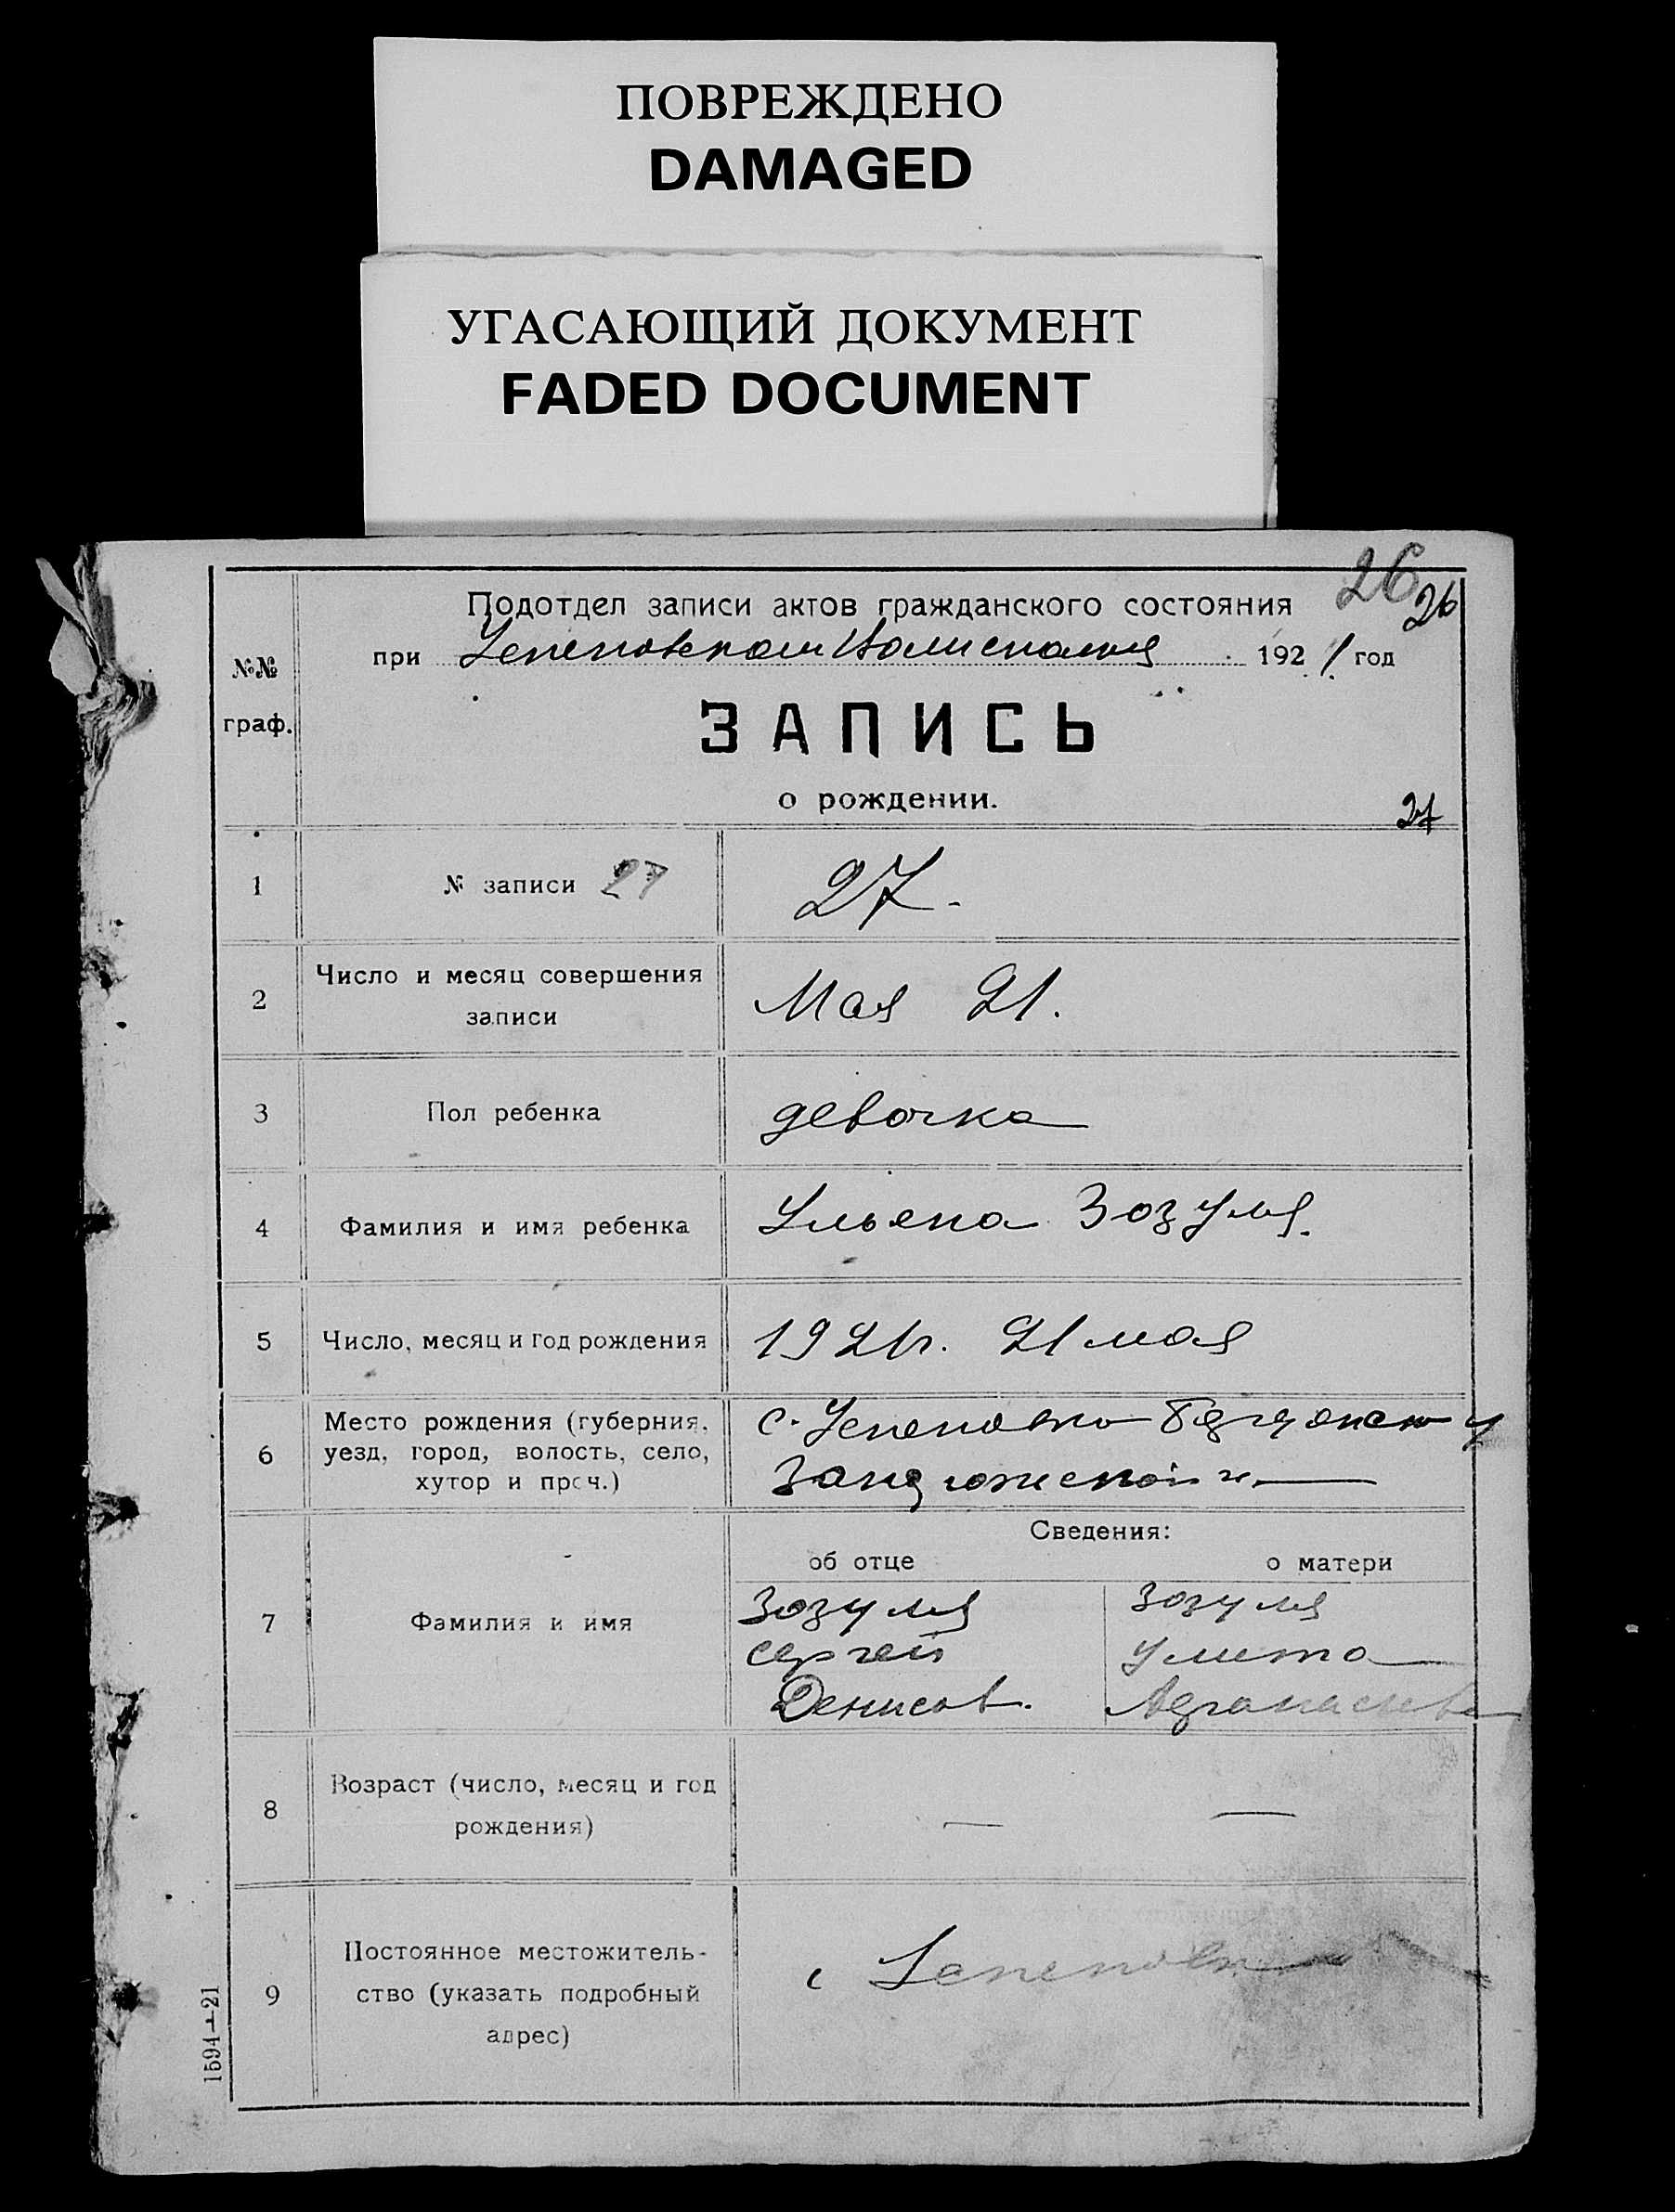 ПОВРЕЖДЕНО
DAMAGED
УГАСАЮЩИЙ ДОКУМЕНТ
FADED DOCUMENT
26
26
Подотдел записи актов гражданского состояния
№№ граф.
при 1921 год
ЗАПИСЬ
о рождении.
27
1 № записи 27 27.
2 Число и месяц совершения записи Мая 21.
3 Пол ребенка девочка
4 Фамилия и имя ребенка Ульяна Зозуля.
5 Число, месяц и год рождения 1921г. 21 мая
6 Место рождения (губерния, уезд, город, волость, село, хутор и проч.)
с.
Сведения:
об отце о матери
7 Фамилия и имя
Зозуля Зозуля
Сергей Улита
Денисов.
8 Возраст (число, месяц и год рождения) — —
9 Постоянное местожительство (указать подробный адрес)
с
1594—21